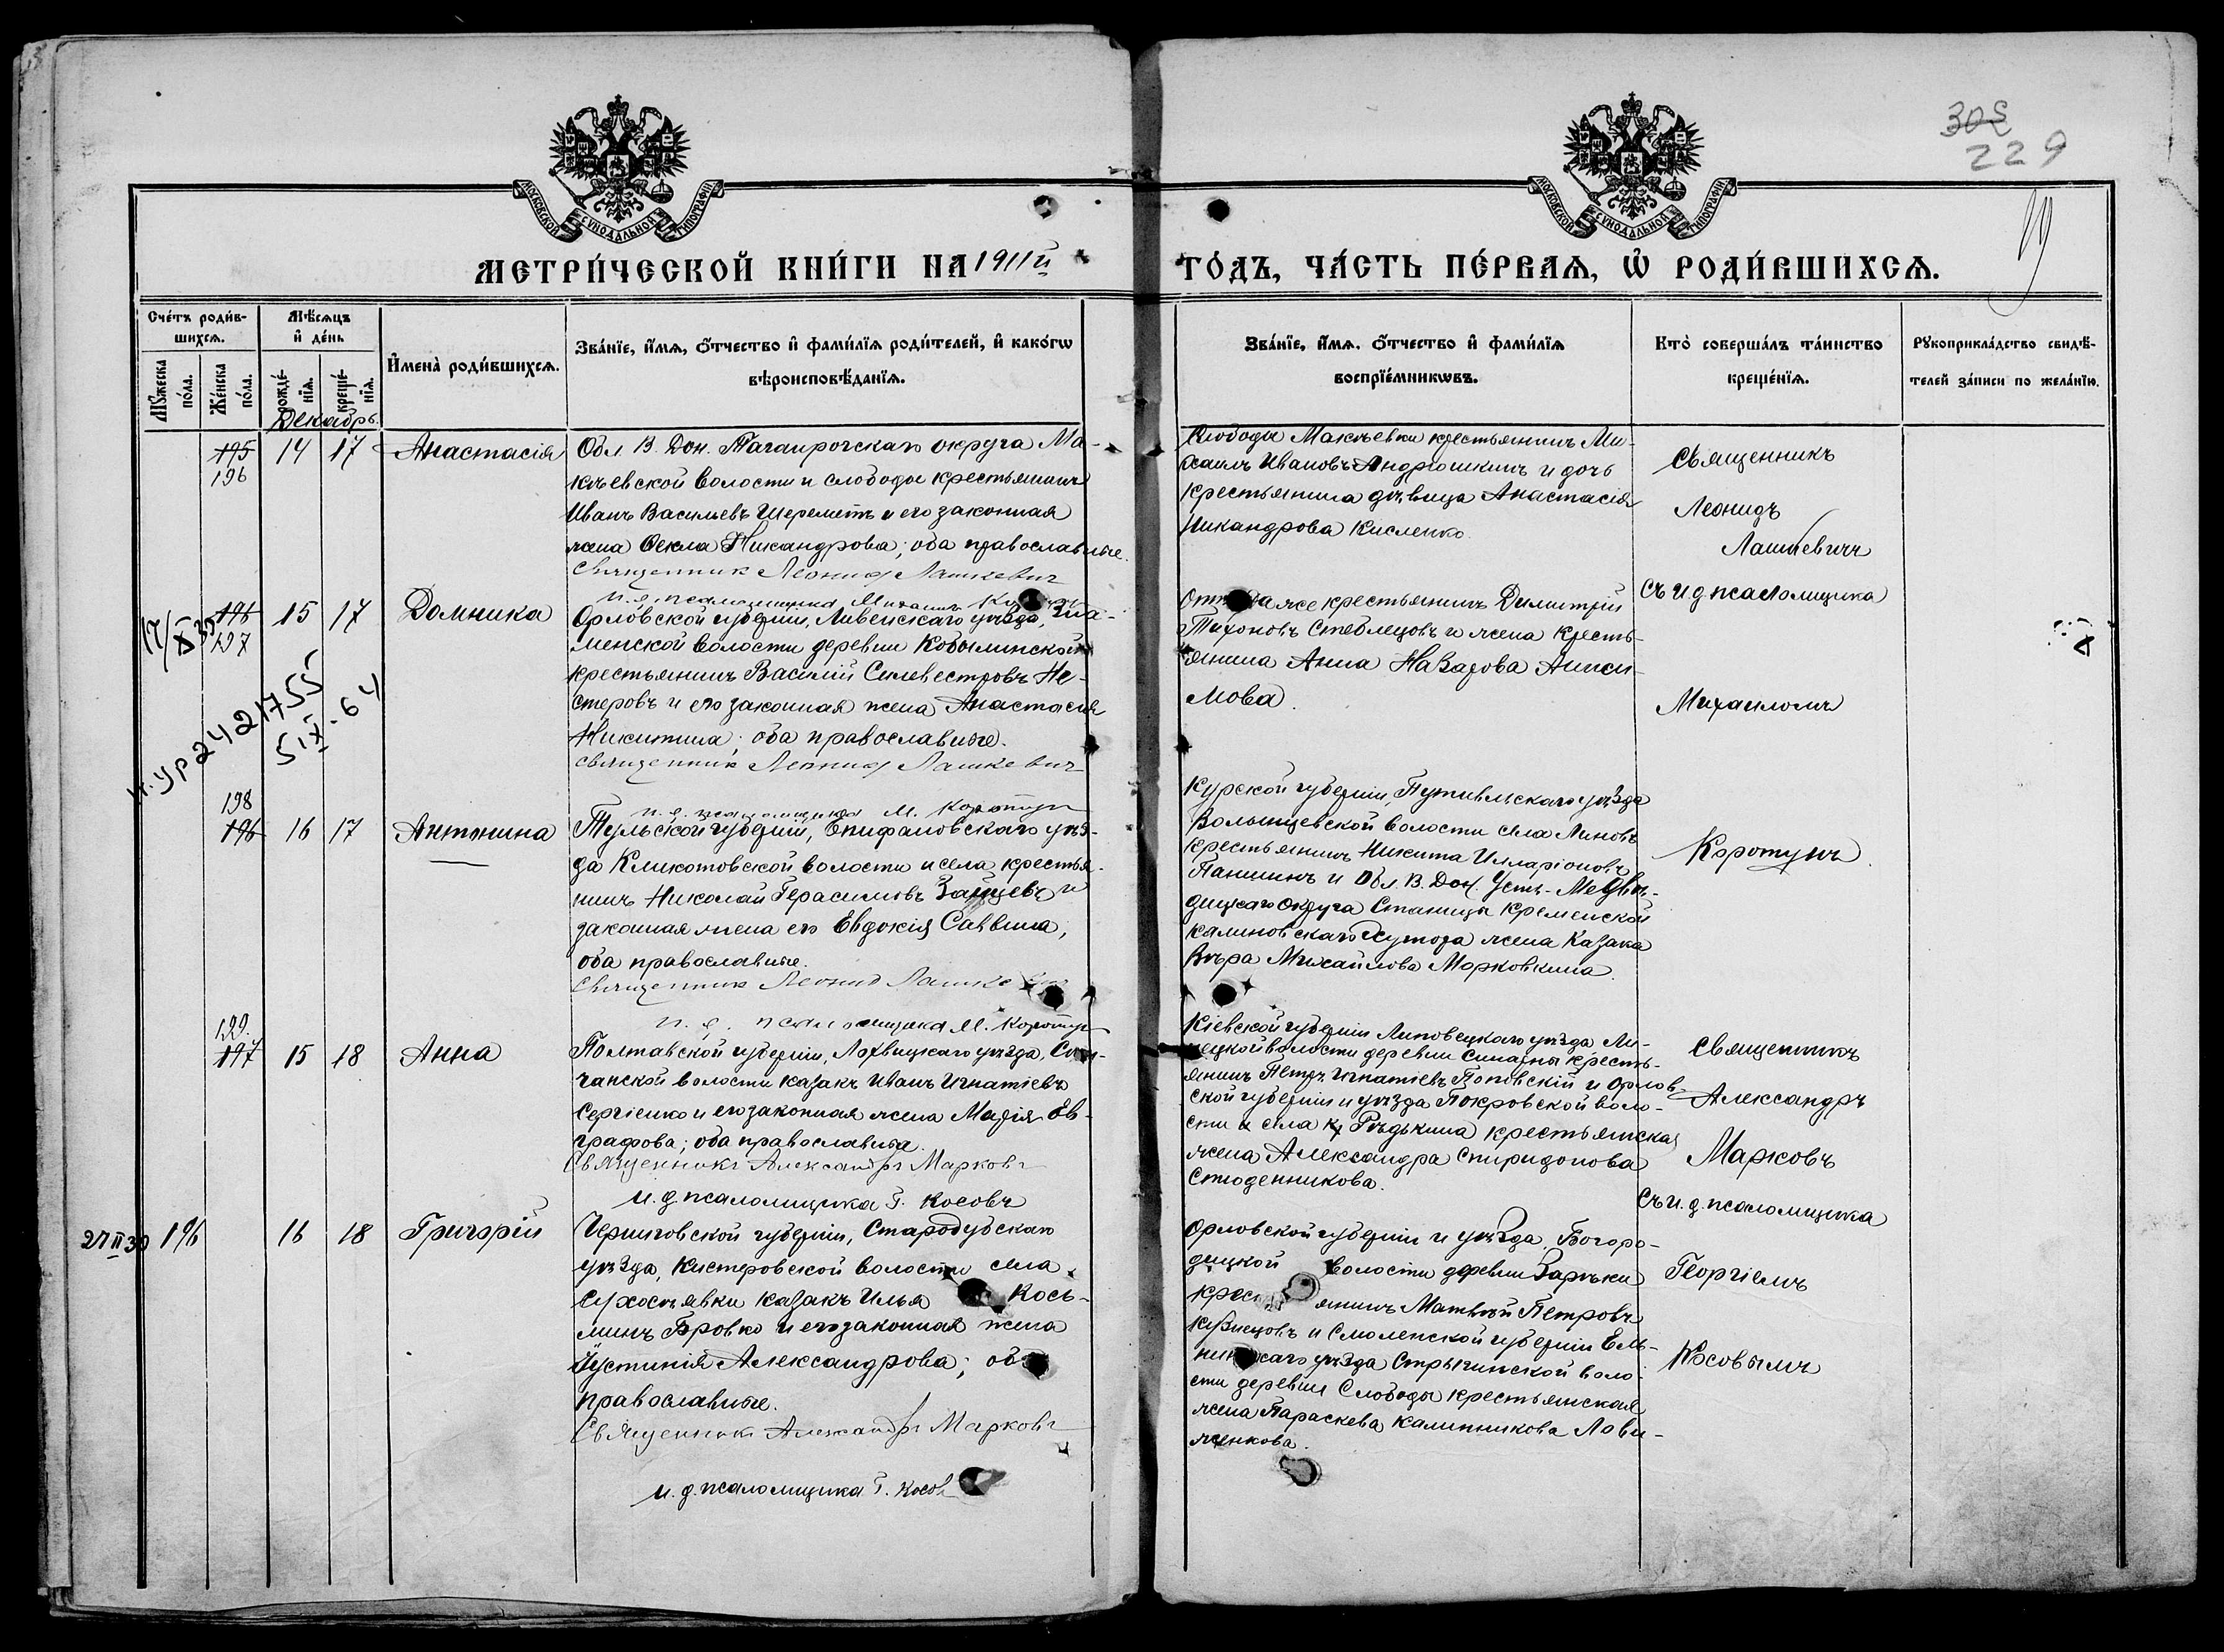 305
229
МОСКОВСКОЙ СѴНОДАЛЬНОЙ ТИПОГРАФІИ
МОСКОВСКОЙ СѴНОДАЛЬНОЙ ТИПОГРАФІИ
МЕТРИ́ЧЕСКОЙ КНИ́ГИ НА 1911й
ГО́ДЪ, ЧА́СТЬ ПЕ́РВАѦ, Ѡ҆ РОДИ́ВШИХСѦ.
Сче́тъ роди́в-
шихсѧ.
Мꙋ́жеска по́ла.
Же́нска по́ла.
Мѣ́сѧцъ
и҆ де́нь
рожде́-нїѧ.
креще́-нїѧ.
Декабрь.
И҆мена̀ роди́вшихсѧ.
Зва́нїе, и҆́мѧ, ѻ҆́тчество и҆ фами́лїѧ роди́телей, и҆ како́гѡ
вѣроисповѣ́данїѧ.
Зва́нїе, и҆́мѧ, ѻ҆́тчество и҆ фами́лїѧ
воспрїе́мникѡвъ.
Кто̀ соверша́лъ та́инство
креще́нїѧ.
Рꙋкоприкла́дство свидѣ́-
телей за́писи по жела́нїю.
195
196
14 17 Анастасія
Обл. В. Дон. Таганрогскаго округа Ма-
кѣевской волости и слободы крестьянинъ
Иванъ Васильевъ Шереметъ и его законная
жена Ѳекла Никандрова; оба православные.
Священник Леонид Лашкевич
и. д. псаломщика Михаилъ
Слободы Макѣевки крестьянинъ Ми-
хаилъ Ивановъ Андрюшкинъ и дочь
крестьянина дѣвица Анастасія
Никандрова Кисленко.
Священникъ
Леонидъ
Лашкевичъ
съ и д псаломщика
Михаиломъ
Коротунъ
17/X 35
196
197
15 17 Домника
Орловской губерніи, Ливенскаго уѣзда, Зна-
менской волости деревни Кобылинской
крестьянинъ Василій Силевестровъ Не-
стеровъ и его законная жена Анастасія
Никитина; оба православные.
Священник Леонид Лашкевич
и. д. псаломщика М. Коротун
крестьянинъ Димитрій
Тихоновъ Стеблецовъ и жена кресть-
янина Анна Назарова Аниси-
мова.
2421755
5 IX-64
198
196
16 17 Антонина
Тульской губерніи, Епифановскаго уѣз-
да Клекотовской волости и села крестья-
нинъ Николай Герасимовъ Зайцевъ и
законная жена его Евдокія Саввина,
оба православные.
Священник Леонид Лашке
и. д. псаломщика М. Коротун
Курской губерніи, Путивльскаго уѣзда
Волынцевской волости села Линовъ
крестьянинъ Никита Илларіоновъ
Паншинъ и Обл. В. Дон. Усть-Медвѣ-
дицкаго округа Станицы Кременской
Калиновскаго Хутора жена казака
Вѣра Михайлова Морковкина.
199.
197
15 18 Анна
Полтавской губерніи, Лохвицкаго уѣзда, Сен-
чанской волости казакъ Иванъ Игнатіевъ
Сергіенко и его законная жена Марія Ев-
графова; оба православные.
Священникъ Александръ Марковъ
и. д. псаломщика Г. Косовъ
Кіевской губерніи Липовецкаго уѣзда Ли-
нецкой волости деревни кресть-
янинъ Петръ Игнатіевъ Поповскій и Орлов-
ской губерніи и уѣзда Покровской воло-
сти и села Рѣдькина крестьянская
жена Александра Спиридонова
Студенникова.
Священникъ
Александръ
Марковъ
съ и. д. псаломщика
Георгіемъ
Косовымъ
27 II 39
196
16 18 Григорій
Черниговской губерніи, Стародубскаго
уѣзда, Кистеровской волости села
казакъ Илья Кось-
минъ Бровко и его законная жена
Іустинія Александрова; оба
православные.
Священникъ Александръ Марковъ
и. д. псаломщика Г. Косов
Орловской губерніи и уѣзда, Богоро-
дицкой волости деревни Зарѣки
крес янинъ Матвѣй Петровъ
Кузнецовъ и Смоленской губерніи Ель-
нинскаго уѣзда Стрыгинской воло-
сти деревни Слободы крестьянская
жена Параскева Калинникова Лови-
женкова.